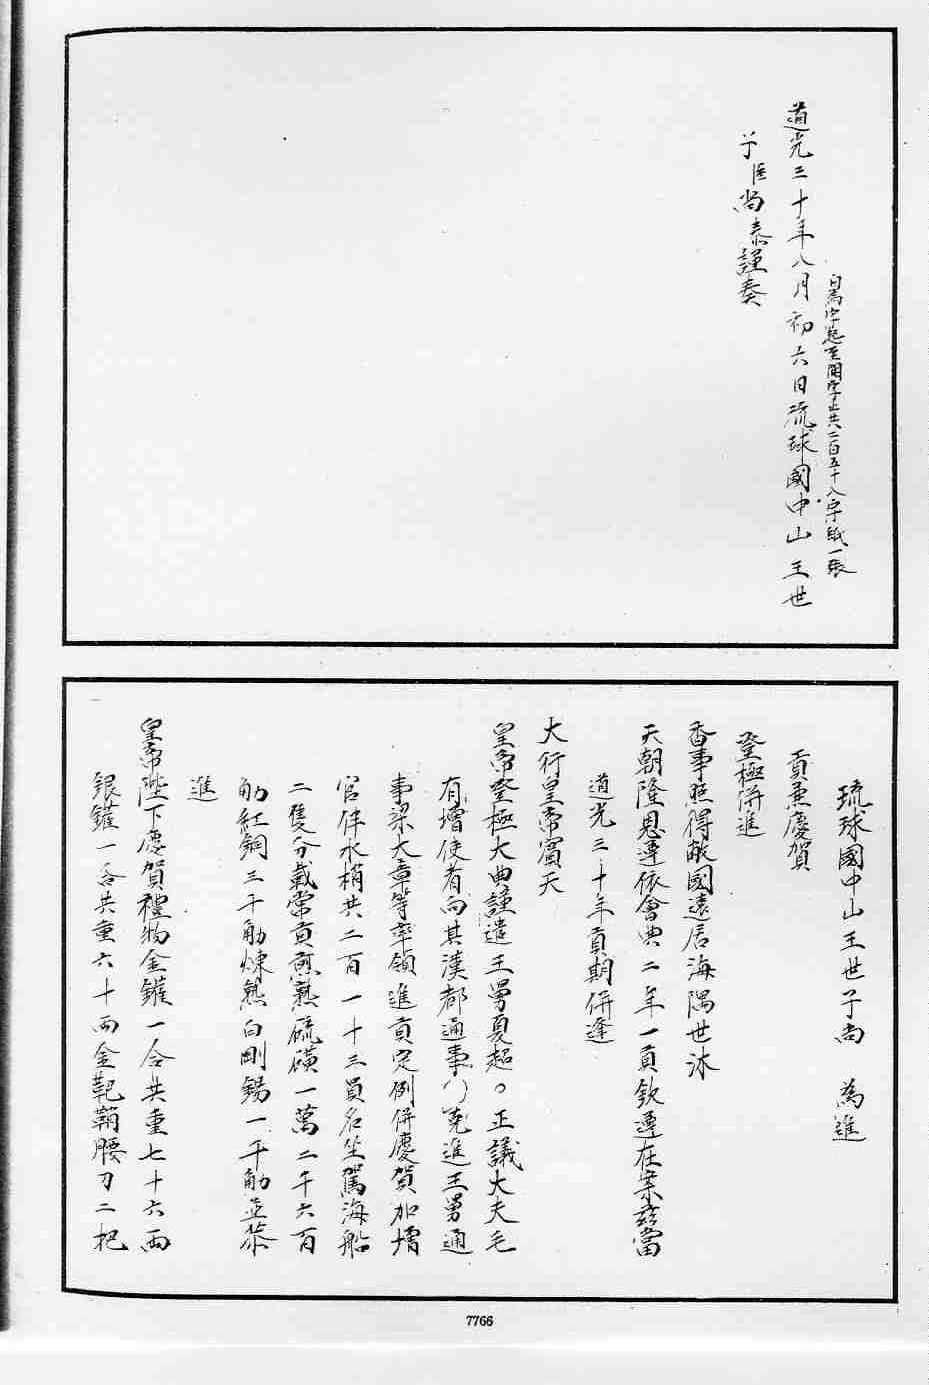 自爲字起至開字止共二百五十八字紙一張
道光三十年八月初六日琉球國中山王世
子臣尚泰謹奏
琉球國中山王世子尚 為進
貢兼慶賀
登極併進
香事照得敝國遠居海隅世沐
天朝隆恩遵依會典二年一貢欽遵在案茲當
道光三十年貢期併逢
大行皇帝賓天
皇帝登極大典謹遣王舅夏超。正議大夫毛
有增使者向其漢都通事八堯進王舅通
事梁大章等率領進貢定例併慶賀加增
官伴水梢共二百一十三員名坐駕海船
二隻分載常貢煎熟硫磺一萬二千六百
觔紅銅三千觔煉熟白剛錫一千觔並恭
進
皇帝陛下慶賀禮物金鑵一合共重七十六兩
銀鑵一合共重六十兩金靶鞘腰刀二把
7766